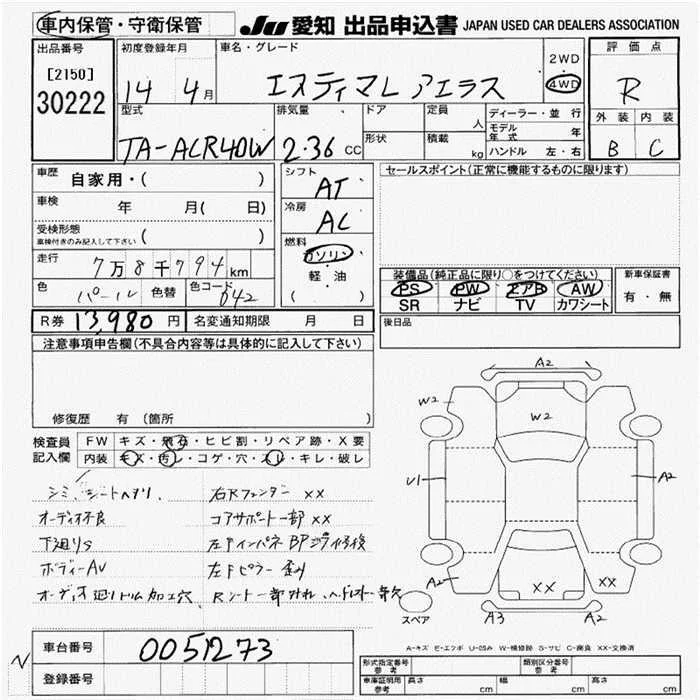 車内保管・守衛保管
JU 愛知 出品申込書 JAPAN USED CAR DEALERS ASSOCIATION
出品番号
[2150]
30222
初度登録年月
14 4月
車名・グレード
エスティマL アエラス
2WD
4WD
評価点
R
外装 内装
B C
型式
TA-ACR40W
排気量
2.36 CC
ドア
形状
定員
人
積載
kg
ディーラー・並行
モデル年式 年
ハンドル 左・右
車歴 自家用・( )
車検 年 月( 日)
受検形態
車検付きのみ記入して下さい ( )
走行 7万8千794km
色 パール 色替 色コード 042
R券 13,980円 名変通知期限 月 日
シフト
AT
冷房
AC
燃料
ガソリン
軽・油
( )
セールスポイント(正常に機能するものに限ります)
装備品(純正品に限り○をつけてください)
PS PW エアB AW
SR ナビ TV カワシート
新車保証書
有・無
後日品
注意事項申告欄(不具合内容等は具体的に記入して下さい)
修復歴 有 (箇所 )
検査員記入欄
FW キズ・飛石・ヒビ割・リペア跡・X要
内装 キズ・汚レ・コゲ・穴・スレ・キレ・破レ
シミ、シートヘタリ
オーディオ不良
下廻りS
ボディーAU
加工穴
右Rフェンダー XX
コアサポート一部 XX
左Fインパネ BP
左Fピラー 歪み
A2
W2
W2
U1
A2
A2
XX
XX
A3
A2
スペア
A-キズ E-エクボ U-凹み W-補修跡 S-サビ C-腐食 XX-交換済
車台番号 0051273
登録番号
形式指定番号
参考
類別区分番号
参考
車庫証明用
参考
長さ cm
幅 cm
高さ cm